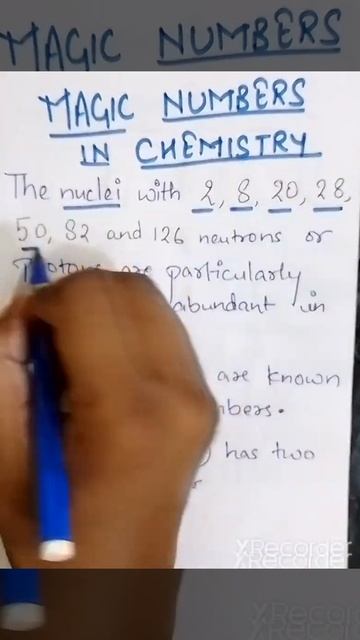 MAGIC NUMBERS
MAGIC NUMBERS
IN CHEMISTRY
The nuclei with 2, 8, 20, 28,
50, 82 and 126 neutrons or
are particularly
abundant in
are known
has two
XRecorder
XRecorder
XRecorder